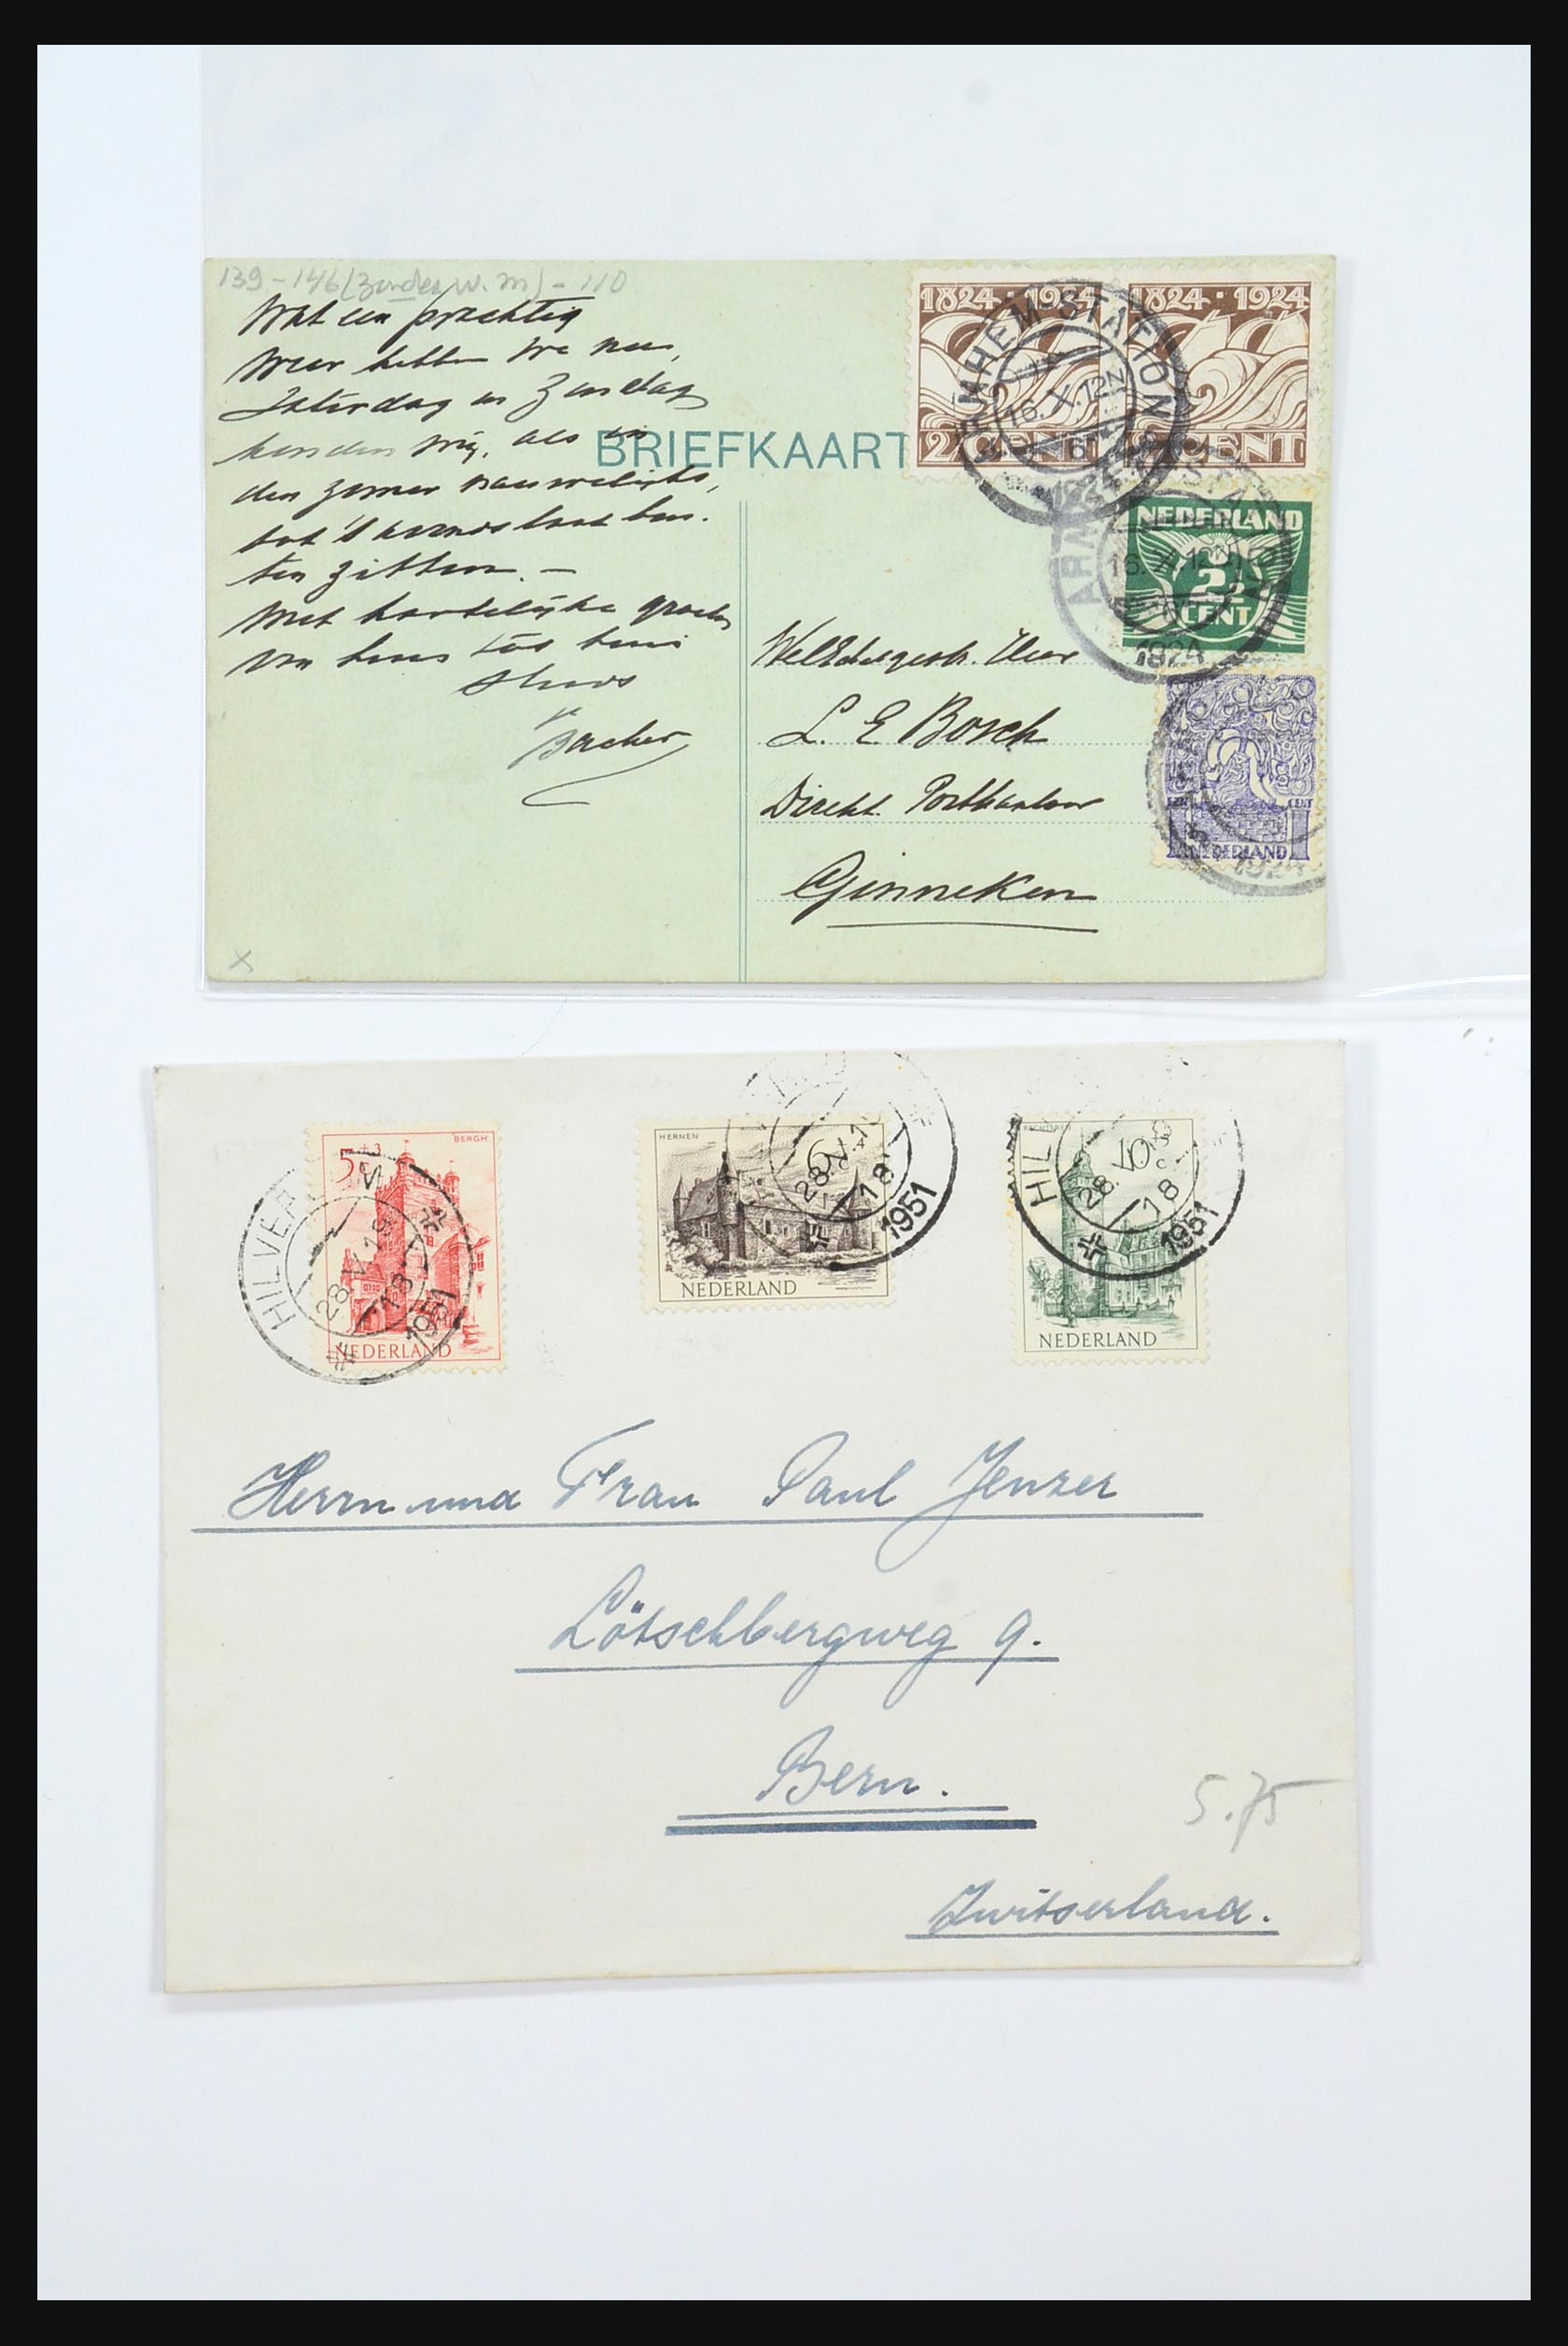 139-146 (zonder w.m) - 110
Wat een prachtig
weer hebben we nu,
Zaterdag en Zondag
konden wij, als in
den zomer nauwelijks,
tot 's avonds laat bui-
ten zitten. -
Met hartelijke groeten
van huis tot huis
Bacher
BRIEFKAART
1824·1924
1824·1924
2 CENT
2 CENT
ARNHEM-STATION
16.X.12N
6
1924
NEDERLAND
2½
CENT
ARNHEM-STATION
16.X.12N
1924
CENT
1
NEDERLAND
1924
WelEdelgestr. Heer
L. E. Bosch
Direkt. Postkantoor
Ginneken
x
5c+3
BERGH
NEDERLAND
HILVERSUM
28.V.18
18
1951
HERNEN
NEDERLAND
28.V.1
18
1951
10c
NEDERLAND
HIL
28.V
18
1951
Herrn und Frau Paul Jenzer
Lötschbergweg 9.
Bern.
5.75
Zwitserland.